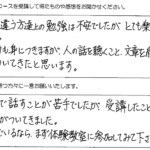 コースを受講して得たものや感想をお聞かせください。
違う方達との勉強は不安でしたが、とても楽
も身につきますが、人の話を聴くこと、文章を
ついてきたと思います。
待つ方々に一言お願いいたします。
で話すことが苦手でしたが、受講したこと
がついてきました。
いるなら、まず体験教室に参加してみて下さ